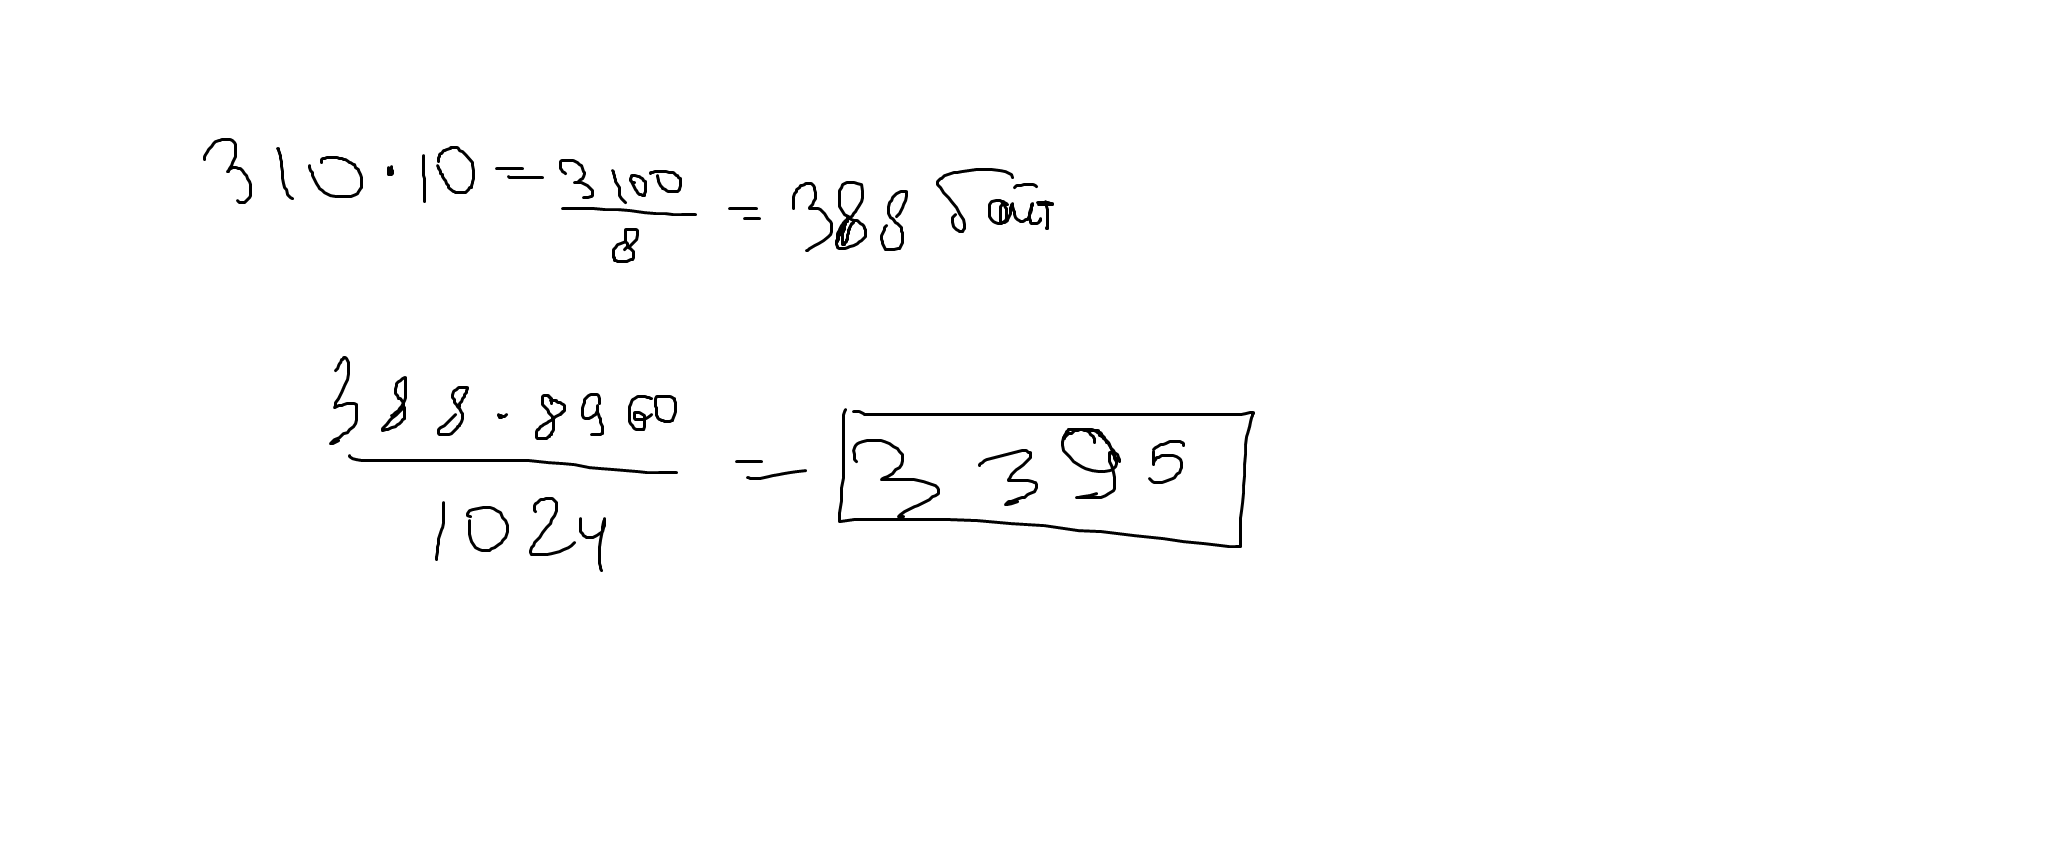 310·10=3100/8=388 байт
388·8960/1024=3395